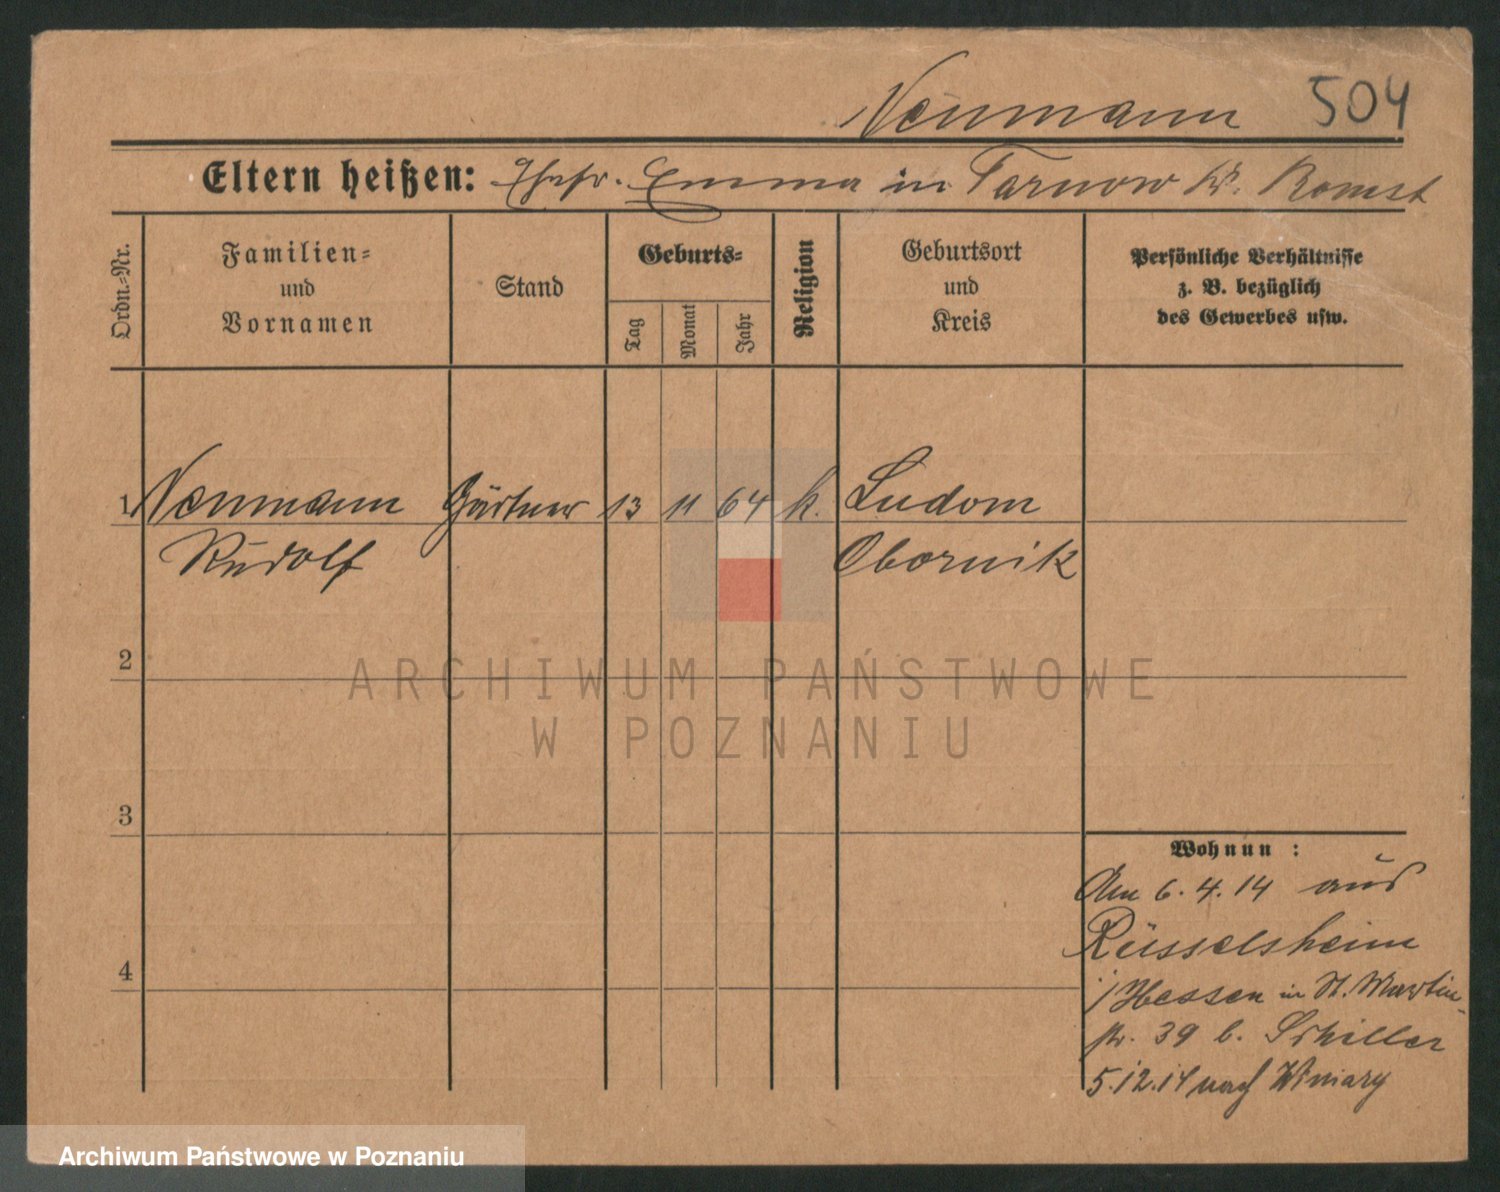 Neumann 504
Eltern heißen: Ehefr. Emma in Tarnow Kr. Bomst
Ordn.-Nr.
Familien-
und
Vornamen
Stand
Geburts-
Tag
Monat
Jahr
Religion
Geburtsort
und
Kreis
Persönliche Verhältnisse
z. B. bezüglich
des Gewerbes usw.
1 Neumann Gärtner 13 11 64 k. Ludom
Rudolf Obornik
2
ARCHIWUM PAŃSTWOWE
W POZNANIU
3
Wohnun :
Am 6.4.14 aus
Rüsselsheim
4
i/Hessen in St. Martin-
str. 39 b. Schiller
5.12.14 nach Winiary
Archiwum Państwowe w Poznaniu